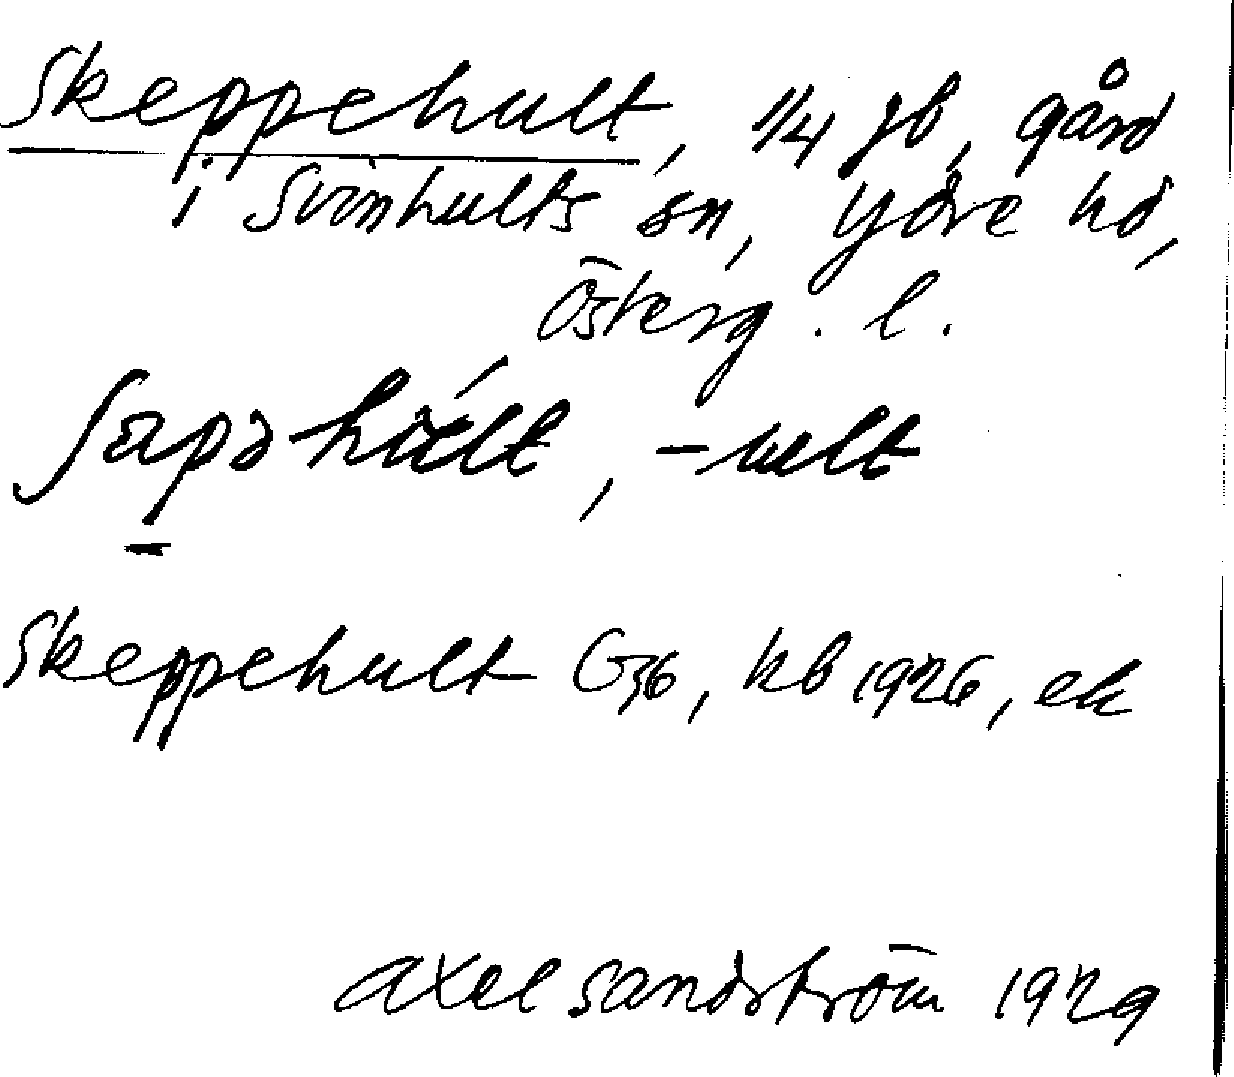 Skeppehult, 1/4 jb, gård
i Svinhults sn, Ydre hd,
Österg. l.
-ult
Skeppehult G36, kb 1926, ek
Axel Sandström 1929